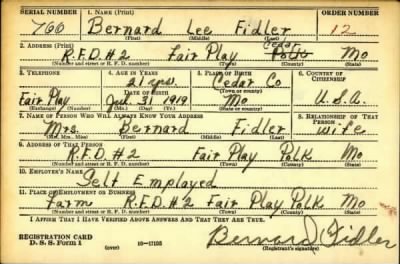 SERIAL NUMBER 1. NAME (Print) ORDER NUMBER
760 Bernard Lee Fidler 12
(First) (Middle) (Last)
2. ADDRESS (Print)
Cedar
R.F.D.#2 Fair Play Polk Mo
(Number and street or R. F. D. number) (Town) (County) (State)
3. TELEPHONE 4. AGE IN YEARS 5. PLACE OF BIRTH 6. COUNTRY OF CITIZENSHIP
21 yrs. Cedar Co
DATE OF BIRTH (Town or county)
Fair Play Jul. 31 1919 Mo U.S.A.
(Exchange) (Number) (Mo.) (Day) (Yr.) (State or country)
7. NAME OF PERSON WHO WILL ALWAYS KNOW YOUR ADDRESS 8. RELATIONSHIP OF THAT PERSON
Mrs. Bernard Fidler wife
(Mr., Mrs., Miss) (First) (Middle) (Last)
9. ADDRESS OF THAT PERSON
R.F.D #2 Fair Play Polk Mo
(Number and street or R. F. D. number) (Town) (County) (State)
10. EMPLOYER'S NAME
Self Employed
11. PLACE OF EMPLOYMENT OR BUSINESS
Farm R.F.D #2 Fair Play Polk Mo
(Number and street or R. F. D. number) (Town) (County) (State)
I AFFIRM THAT I HAVE VERIFIED ABOVE ANSWERS AND THAT THEY ARE TRUE.
REGISTRATION CARD
D. S. S. Form 1 (over) 16—17105 Bernard Fidler
(Registrant's signature)